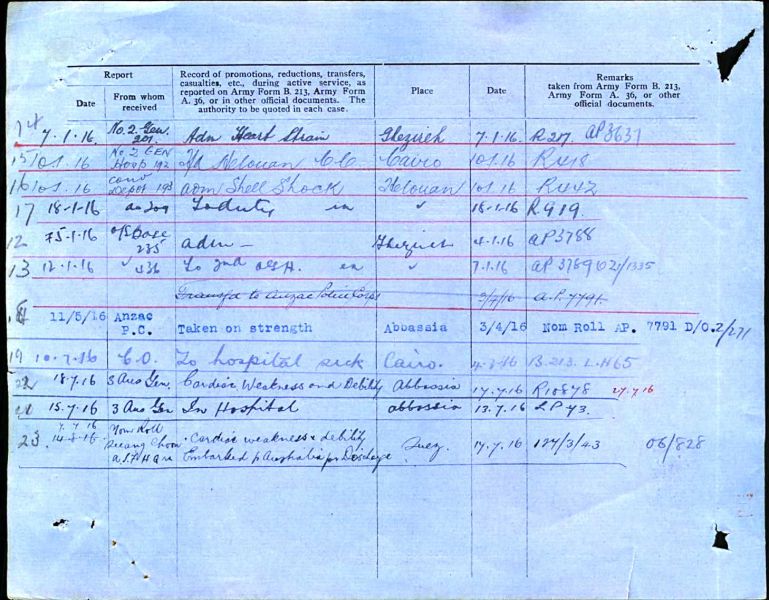 Report
Record of promotions, reductions, transfers, casualties, etc., during active service, as reported on Army Form B. 213, Army Form A. 36, or in other official documents. The authority to be quoted in each case.
Place
Date
Remarks
taken from Army Form B. 213, Army Form A. 36, or other official documents.
Date
From whom received
7.1.16. No. 2. Gen. Adm Heart Strain Ghezireh 7.1.16. R207 AP3631
15 10.1.16 No 2 GEN Hosp 192 Helouan C.C. Cairo 10.1.16 R418
16 10.1.16 Conv Depot adm Shell Shock Helouan 10.1.16 R442
17 18-1-16 To duty 18-1-16 R919.
12 5.1.16 O/S Base 235 adm — 4-1-16 AP3788
13 12.1.16 " 436 To 2nd A.G.H. " 7.1.16 AP 3789
Transfd to Anzac Police Corps A.P. 7791
11/5/16 Anzac P.C. Taken on strength Abbassia 3/4/16 Nom Roll AP. 7791 D/O.2/271
19 10.7.16 C.O. To hospital sick Cairo. B.213.
18.7.16 3 Aus Gen. Cardiac Weakness and Debility Abbassia 17.7.16 R10878 27.7.16
15.7.16 3 Aus Gen In Hospital abbassia 13.7.16 73.
23 Nom Roll Cardiac weakness & debility Suez. 17.7.16 127/3/43 06/828
Embarked for Australia for Discharge